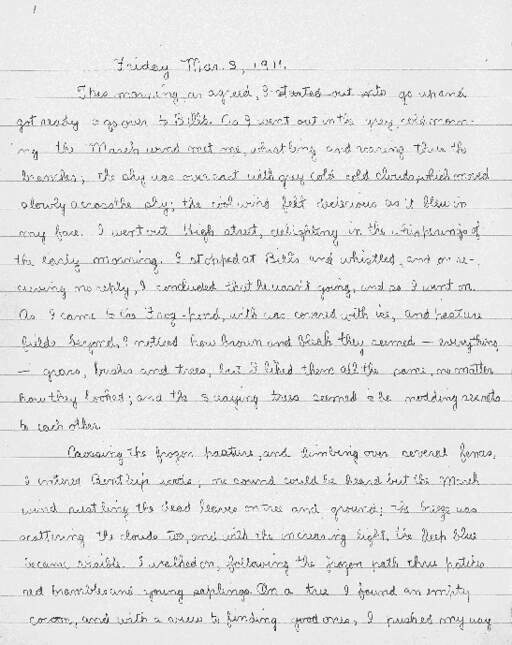 Friday Mar. 3, 1911.
This morning, as agreed, I started out to go up and
got ready to go over to Bill's. As I went out in the grey, cold morn-
ing the March wind met me, whistling and roaring thru the
branches; the sky was overcast with grey cold cold clouds, which moved
slowly across the sky; the cool wind felt delicious as it blew in
my face. I went out High street, delighting in the whisperings of
the early morning. I stopped at Bill's and whistled, and on re-
ceiving no reply, I concluded that he wasn't going, and so I went on.
As I came to the Frog-pond, with was covered with ice, and pasture
fields beyond, I noticed how brown and bleak they seemed — everything
— grass, bushes and trees, but I liked them all the same, no matter
how they looked; and the swaying trees seemed to be nodding secrets
to each other.
Crossing the frozen pasture, and climbing over several fences,
I entered woods; no sound could be heard but the March
wind rustling the dead leaves on tree and ground; the breeze was
scattering the clouds too, and with the increasing light, the deep blue
became visible. I walked on, following the frozen path thru
red brambles and young saplings. On a tree I found an empty
cocoon, and with a view to finding good ones, I pushed my way